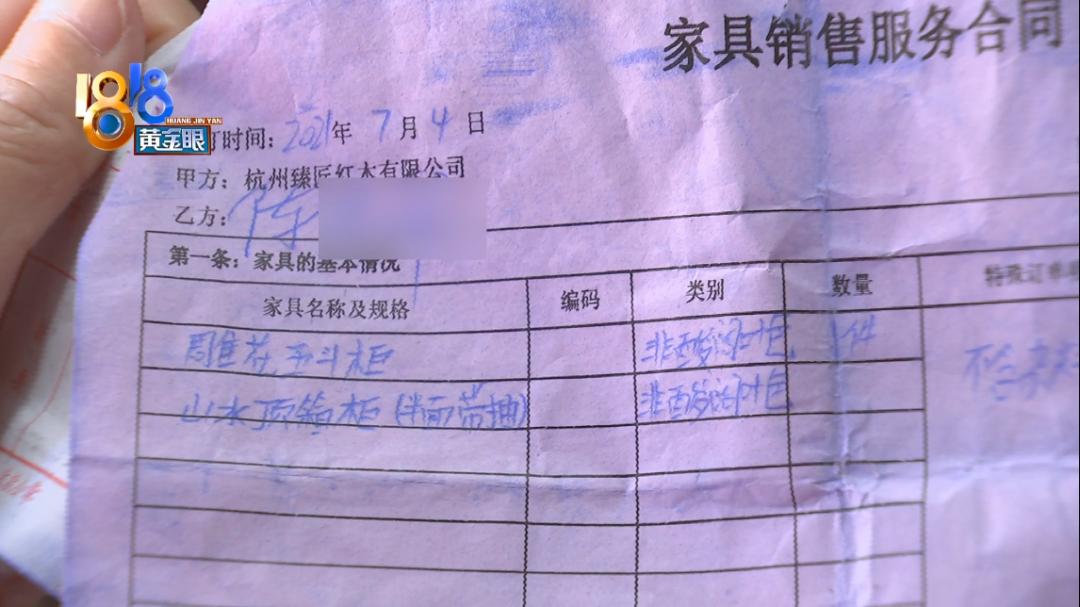 家具销售服务合同
1818
HUANG JIN YAN
黄金眼
订时间：2021年7月4日
甲方：杭州臻匠红木有限公司
乙方：陈
第一条：家具的基本情况
家具名称及规格 编码 类别 数量 特殊订单
雕花五斗柜 非酸闭仓 1件 不含
山水顶箱柜（半面带抽） 非酸闭仓